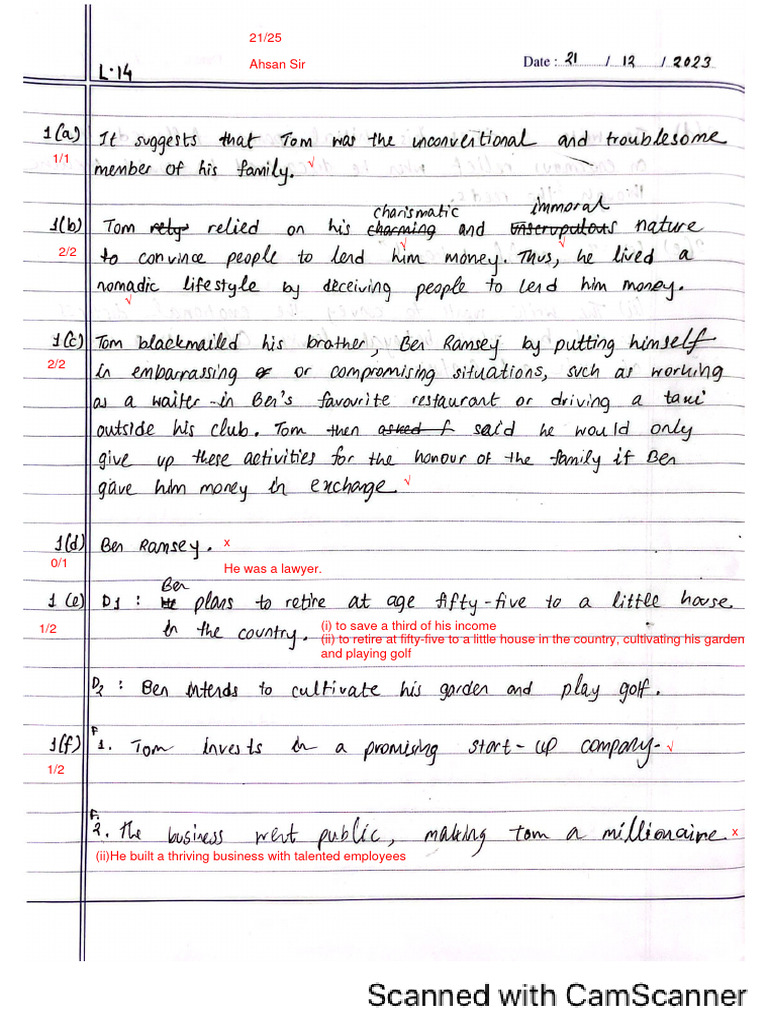 21/25
Ahsan Sir
L-14
Date : 21 / 12 / 2023
1(a) It suggests that Tom was the unconventional and troublesome
1/1
member of his family. ✓
charismatic immoral
1(b) Tom rely relied on his charming and unscrupulous nature
2/2
to convince people to lend him money. Thus, he lived a
nomadic lifestyle by deceiving people to lend him money.
1(c) Tom blackmailed his brother, Ben Ramsey by putting himself
2/2
in embarrassing or or compromising situations, such as working
as a waiter in Ben's favourite restaurant or driving a taxi
outside his club. Tom then asked f said he would only
give up these activities for the honour of the family if Ben
gave him money in exchange. ✓
1(d) Ben Ramsey. x
0/1
He was a lawyer.
Ben
1(e) D1 : He plans to retire at age fifty-five to a little house
1/2
in the country.
(i) to save a third of his income
(ii) to retire at fifty-five to a little house in the country, cultivating his garden
and playing golf
D2 : Ben intends to cultivate his garden and play golf.
1(f) F 1. Tom invests in a promising start-up company. ✓
1/2
F. 2. The business went public, making tom a millionaire. x
(ii)He built a thriving business with talented employees
Scanned with CamScanner